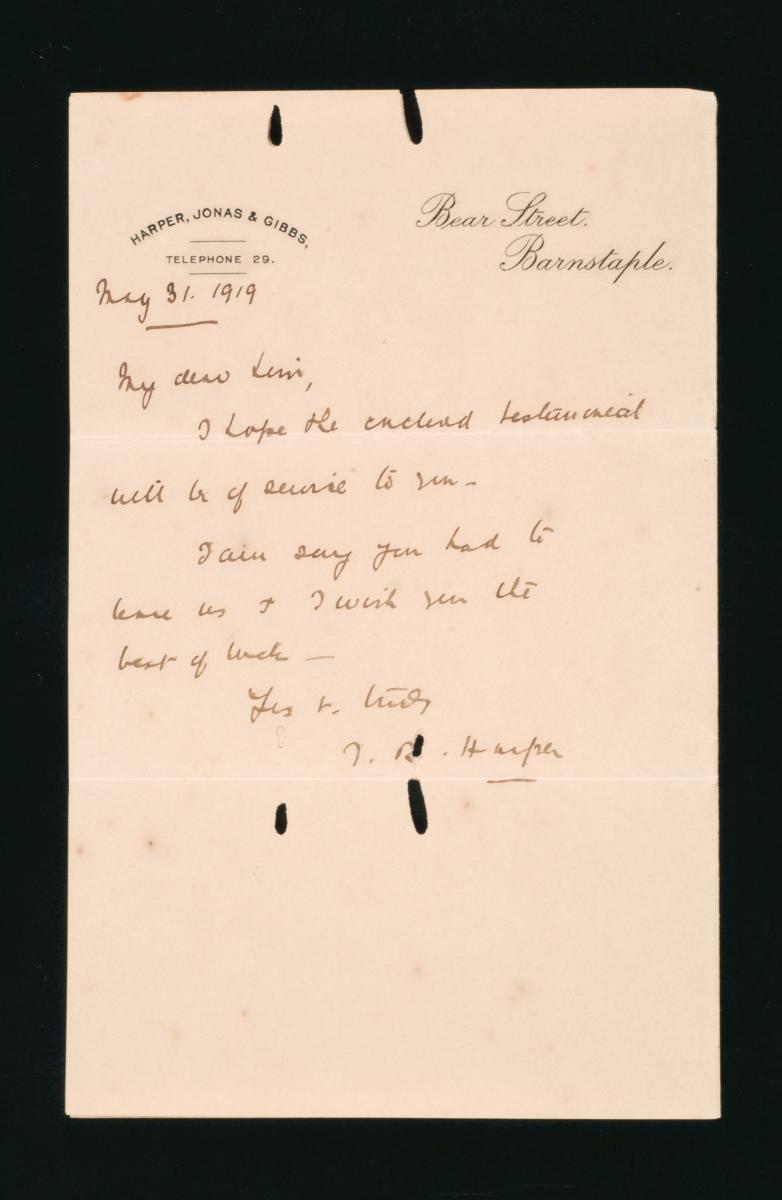 HARPER, JONAS & GIBBS,
TELEPHONE 29.
Bear Street.
Barnstaple.
May 31. 1919
My dear
I hope the enclosed testimonial
will be of service to you -
I am sorry you had to
leave us & I wish you the
best of luck —
Harper